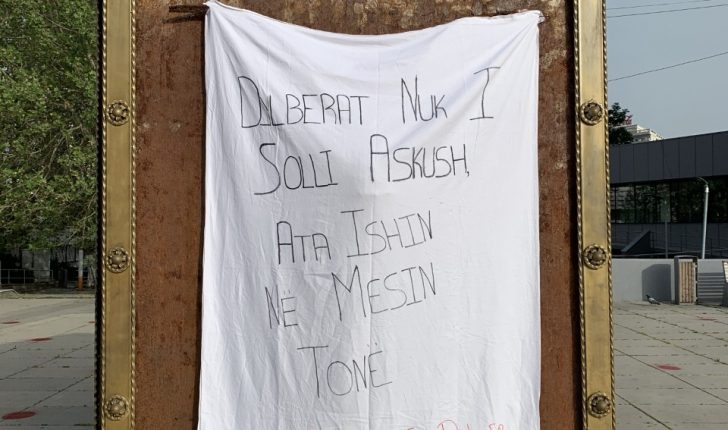 DILBERAT NUK I
SOLLI ASKUSH,
ATA ISHIN
NË MESIN
TONË